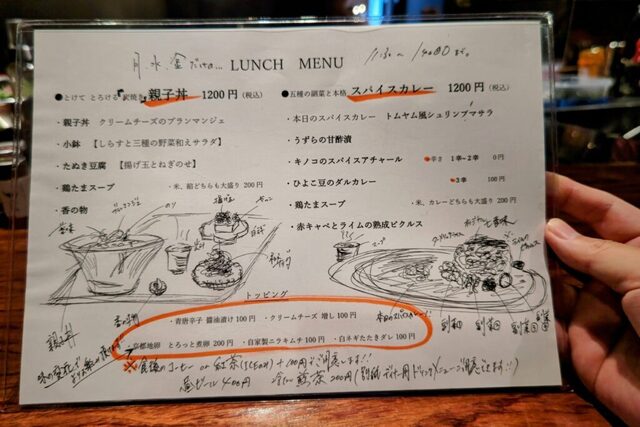 月 水 金 だけの... LUNCH MENU
●とけて とろける 炭焼き 親子丼 1200円 (税込)
・親子丼 クリームチーズのブランマンジェ
・小鉢 【しらすと三種の野菜和えサラダ】
・たぬき豆腐 【揚げ玉とねぎのせ】
・鶏たまスープ ・米、餡どちらも大盛り 200円
・香の物
●五種の副菜と本格 スパイスカレー 1200円 (税込)
・本日のスパイスカレー トムヤム風シュリンプマサラ
・うずらの甘酢漬
・キノコのスパイスアチャール ●辛さ 1辛~2辛 0円
・ひよこ豆のダルカレー ●3辛 100円
・鶏たまスープ ・米、カレーどちらも大盛り 200円
・赤キャベとライムの熟成ピクルス
のり
香の物
親子丼
スープ
副菜
副菜
副菜
副菜
トッピング
・青唐辛子 醤油漬け 100円 ・クリームチーズ 増し 100円
・京都地卵 とろっと煮卵 200円 ・自家製ニラキムチ 100円 ・白ネギたたきダレ 100円
※食後のコーヒー or 紅茶 (ICE or H) +100円でご用意します!!
昼ビール 400円
200円 (別紙ディナー用ドリンクメニューご用意できます!!)